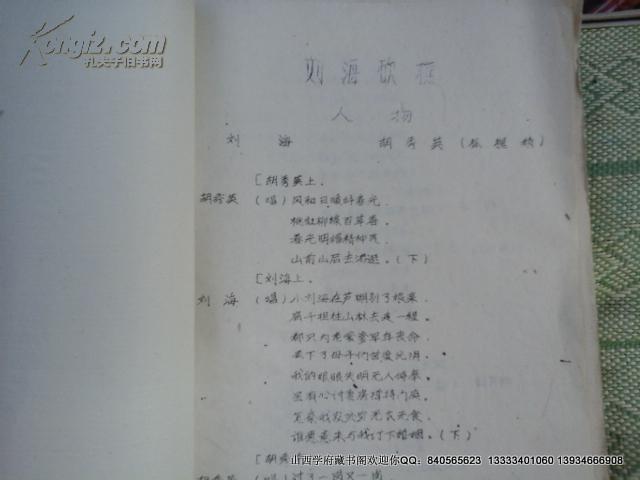 Kongfz.com
孔夫子旧书网
刘海砍樵
人 物
刘 海 胡秀英(狐狸精)
[胡秀英上.
胡秀英 (唱)风和日暖好春光.
桃红柳绿百草香.
春光明媚精神爽
山前山后去游逛.(下)
[刘海上.
刘 海 (唱)小刘海在芦明别了娘亲.
肩千担往山林去走一程.
都只为老爹爹早年丧命.
丢下了母子们苦度光阴.
我的娘眼失明无人侍奉.
无衣无食.
(下)
[胡秀
山西学府藏书阁欢迎你QQ:840565623 13333401060 13934666908
胡秀英 (唱)过了一岗又一岗